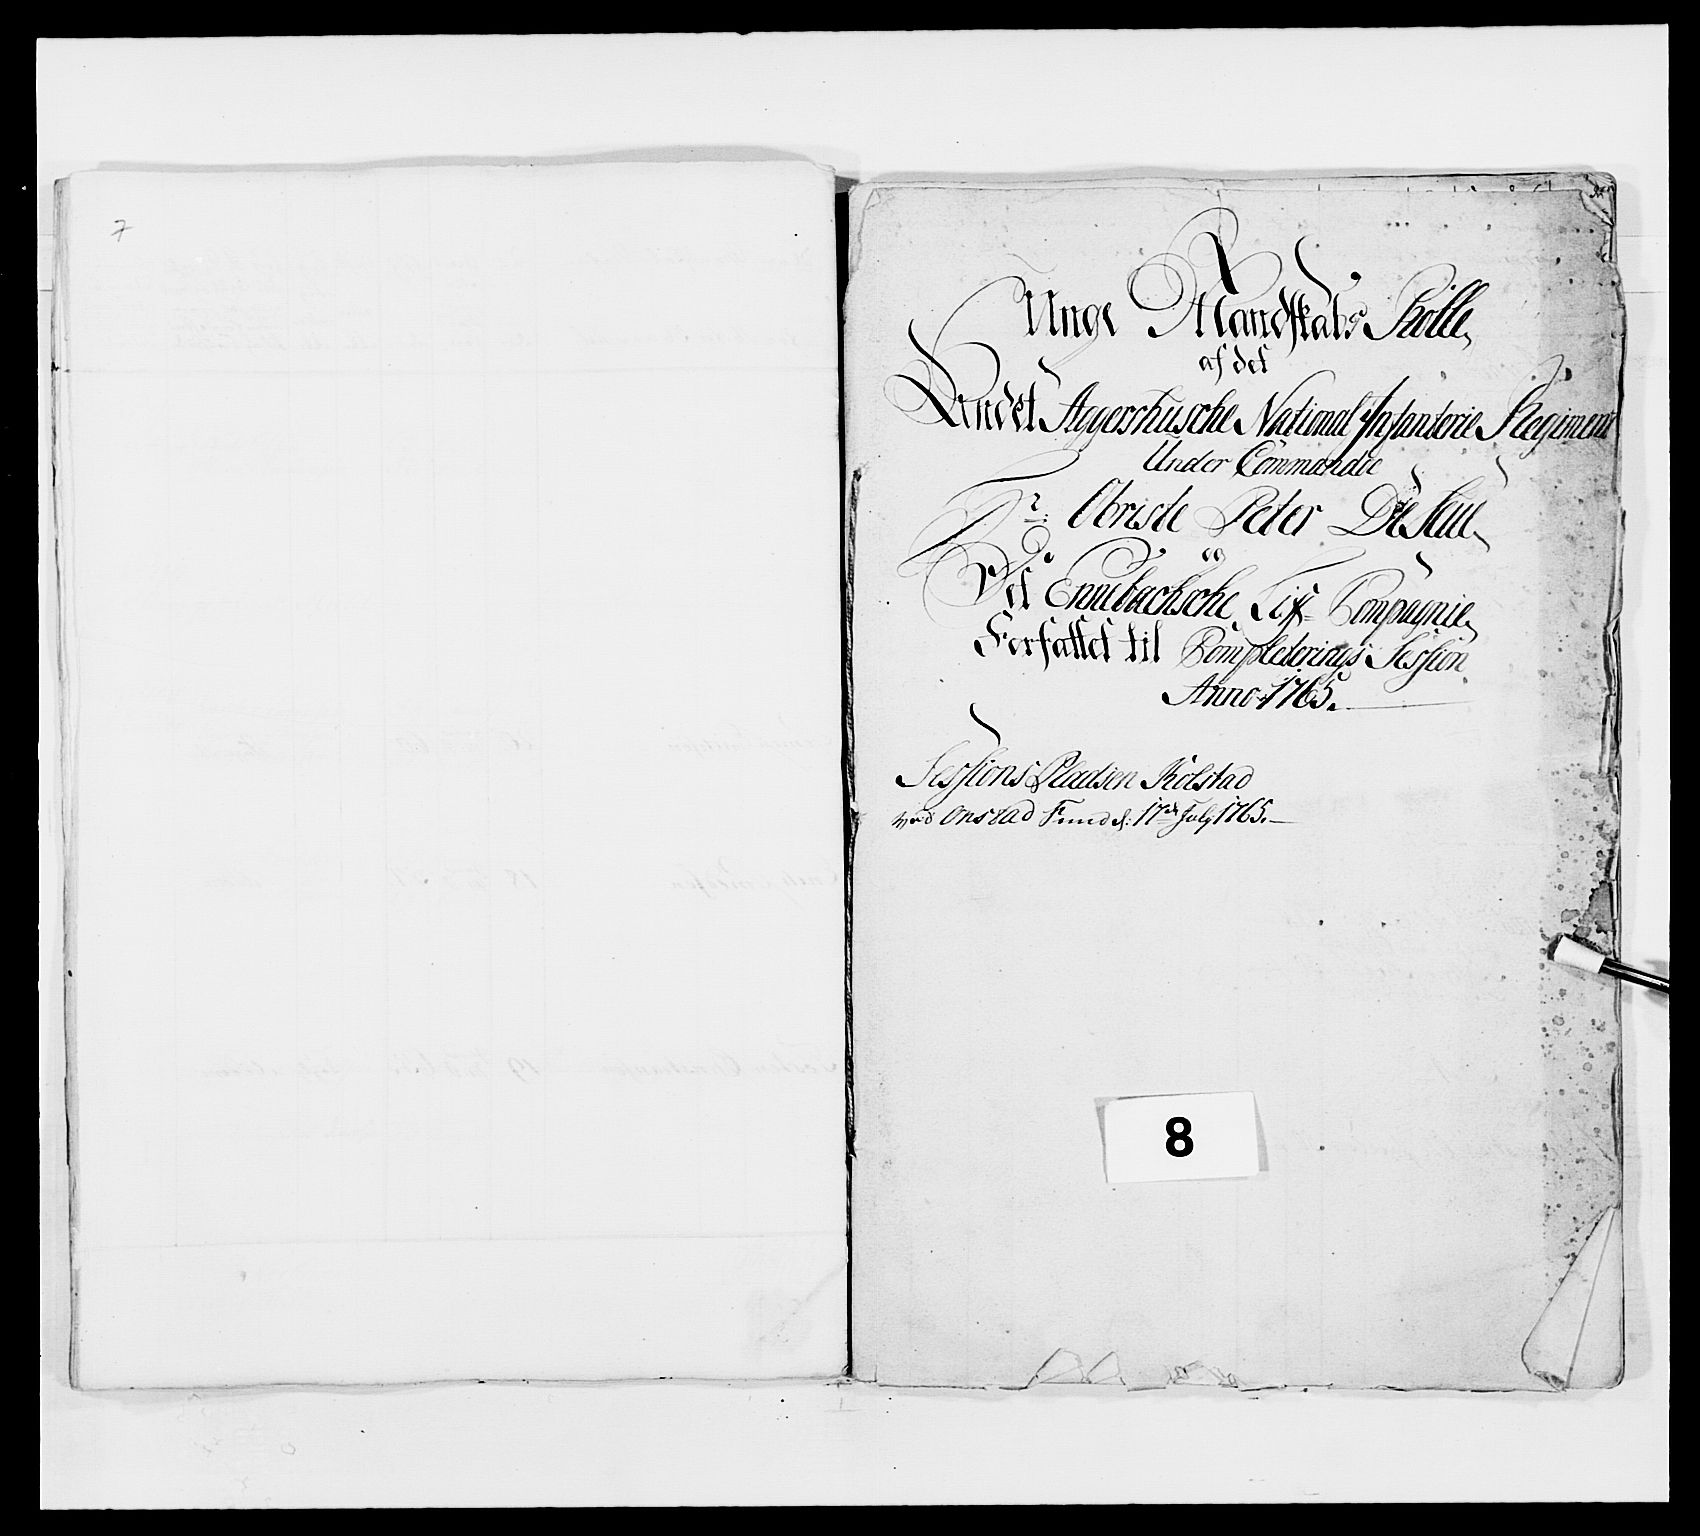 7
Unge Mandskabs Rolle,
af det
Andet Aggershusche National Infanterie Regiment
Under Commando
Hr: Obriste Peter De Seue,
Det Ennebachsche Lif= Compagnie,
Forfattet til Completerings Session
Anno 1765.
Sessions Pladsen Kolstad
ved Onstad Sund d: 17de July 1765.
8